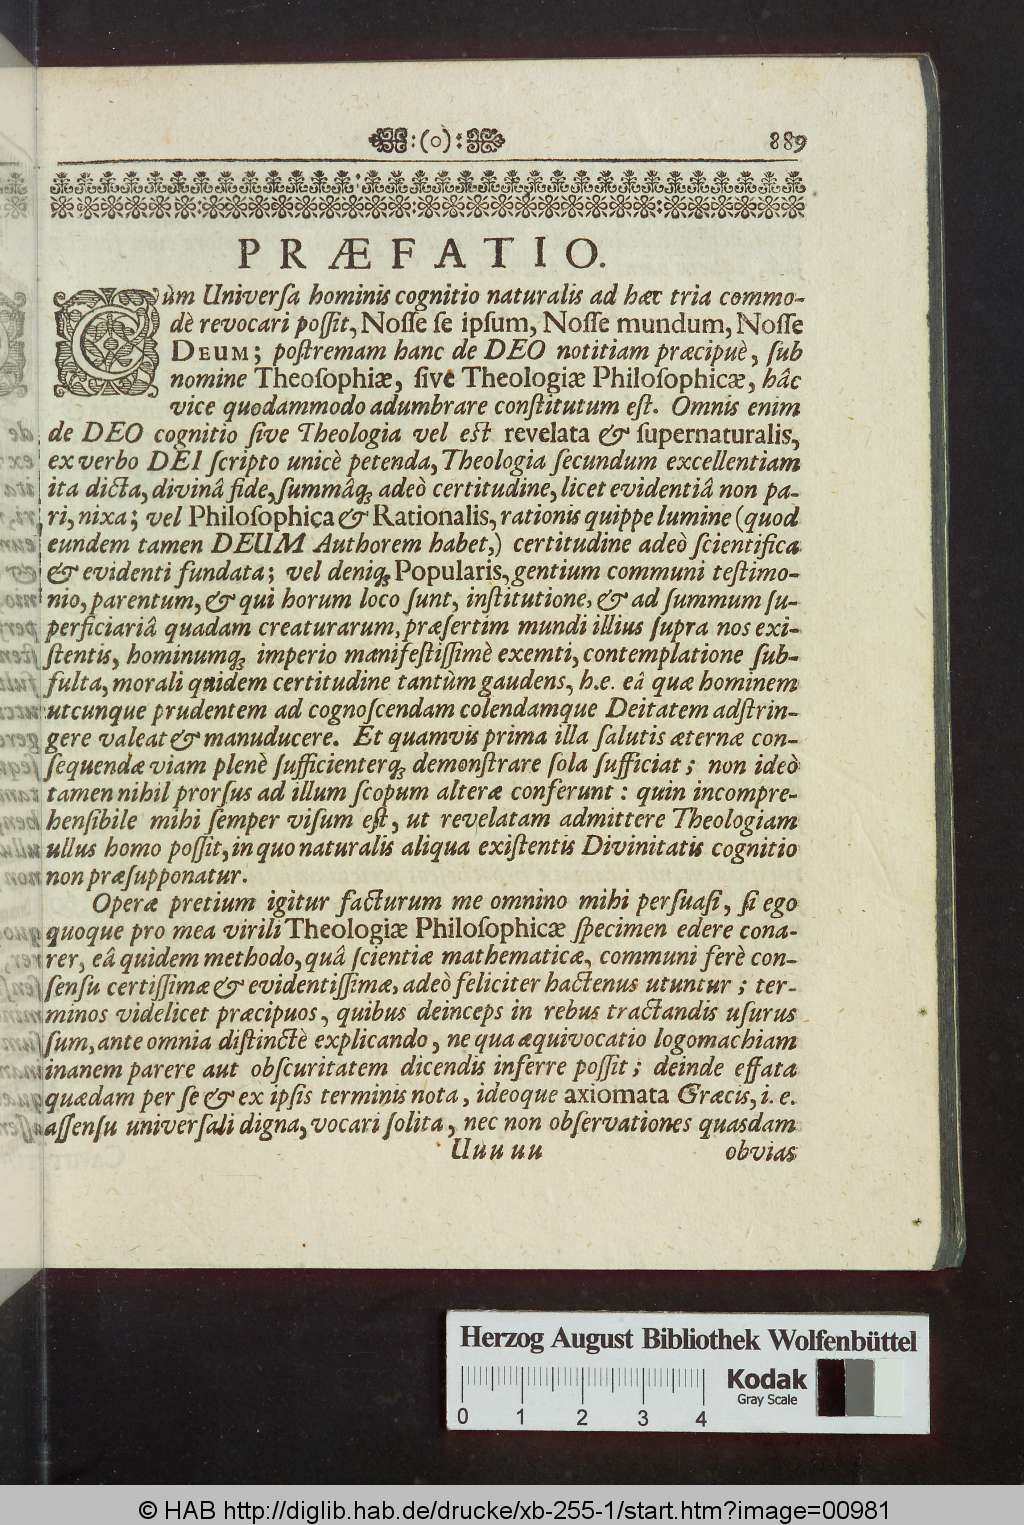 :(o): 889
PRÆFATIO.
Cùm Universa hominis cognitio naturalis ad hæc tria commo-
dè revocari poſſit, Noſſe ſe ipſum, Noſſe mundum, Noſſe
DEUM; poſtremam hanc de DEO notitiam præcipuè, ſub
nomine Theoſophiæ, ſive Theologiæ Philoſophicæ, hâc
vice quodammodo adumbrare conſtitutum eſt. Omnis enim
de DEO cognitio ſive Theologia vel eſt revelata & ſupernaturalis,
ex verbo DEI ſcripto unicè petenda, Theologia ſecundum excellentiam
ita dicta, divinâ fide, ſummâq; adeò certitudine, licet evidentiâ non pa-
ri, nixa; vel Philoſophica & Rationalis, rationis quippe lumine (quod
eundem tamen DEUM Authorem habet,) certitudine adeò ſcientifica
& evidenti fundata; vel deniq; Popularis, gentium communi teſtimo-
nio, parentum, & qui horum loco ſunt, inſtitutione, & ad ſummum ſu-
perficiariâ quadam creaturarum, præſertim mundi illius ſupra nos exi-
ſtentis, hominumq; imperio manifeſtiſſimè exemti, contemplatione ſub-
fulta, morali quidem certitudine tantùm gaudens, h.e. eâ quæ hominem
utcunque prudentem ad cognoſcendam colendamque Deitatem adſtrin-
gere valeat & manuducere. Et quamvis prima illa ſalutis æternæ con-
ſequendæ viam plenè ſufficienterq; demonſtrare ſola ſufficiat; non ideò
tamen nihil prorſus ad illum ſcopum alteræ conferunt: quin incompre-
henſibile mihi ſemper viſum eſt, ut revelatam admittere Theologiam
ullus homo poſſit, in quo naturalis aliqua exiſtentis Divinitatis cognitio
non præſupponatur.
Operæ pretium igitur facturum me omnino mihi perſuaſi, ſi ego
quoque pro mea virili Theologiæ Philoſophicæ ſpecimen edere cona-
rer, eâ quidem methodo, quâ ſcientiæ mathematicæ, communi ferè con-
ſenſu certiſſimæ & evidentiſſimæ, adeò feliciter hactenus utuntur; ter-
minos videlicet præcipuos, quibus deinceps in rebus tractandis uſurus
ſum, ante omnia diſtinctè explicando, ne qua æquivocatio logomachiam
inanem parere aut obſcuritatem dicendis inferre poſſit; deinde effata
quædam per ſe & ex ipſis terminis nota, ideoque axiomata Græcis, i. e.
aſſenſu univerſali digna, vocari ſolita, nec non obſervationes quasdam
Uuu uu obvias
Herzog August Bibliothek Wolfenbüttel
Kodak
Gray Scale
0 1 2 3 4
© HAB http://diglib.hab.de/drucke/xb-255-1/start.htm?image=00981